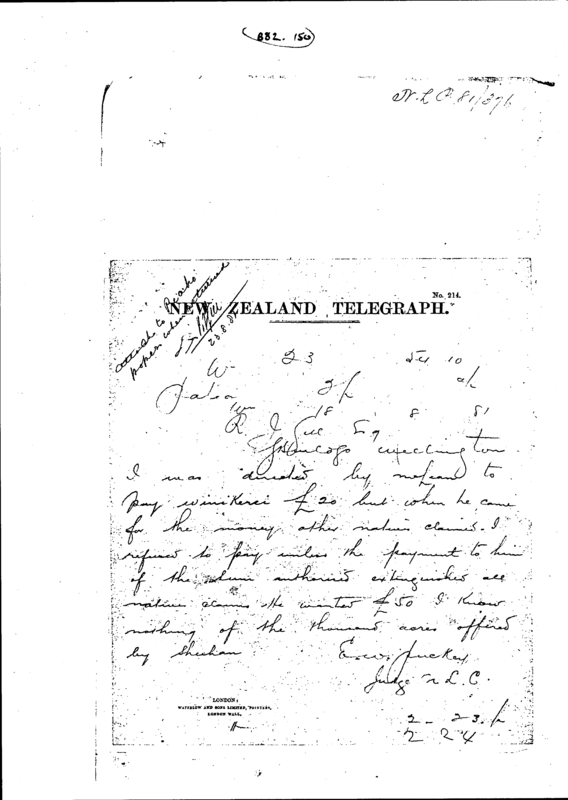 BB2. 150
N.L.C. 81/376
No. 214.
NEW ZEALAND TELEGRAPH.
attach to
papers when returned
23.8.81
W 23
18 8 81
R J Gill Esq
Wellington
I was directed by McLean to
pay Winikerei £20 but when he came
for the money other natives claimed. I
refused to pay unless the payment to him
of the sum authorised extinguished all
native claims He wanted £50 I know
nothing of the thousand acres offered
by Sheehan
E.W. Puckey
Judge N.L.C.
LONDON:
WATERLOW AND SONS LIMITED, PRINTERS,
LONDON WALL.
2 - 23. p
2 24